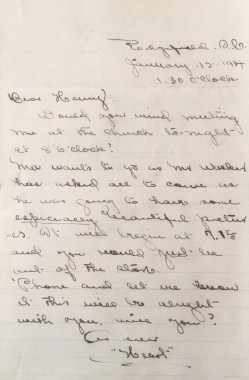 Edgefield, S.C.
January 12, 19
1.30 O'clock
Dear Henry:
Would you mind meeting
me at the church to-night
at 8 o'clock?
Ma wants to go as Mr
has asked all to come as
he was going to have some
especially beautiful pictur
es. It will begin at 7.15
and you would just be
out of the store.
'Phone and let me know
if this will be alright
with you, will you?
As ever
"Heart"